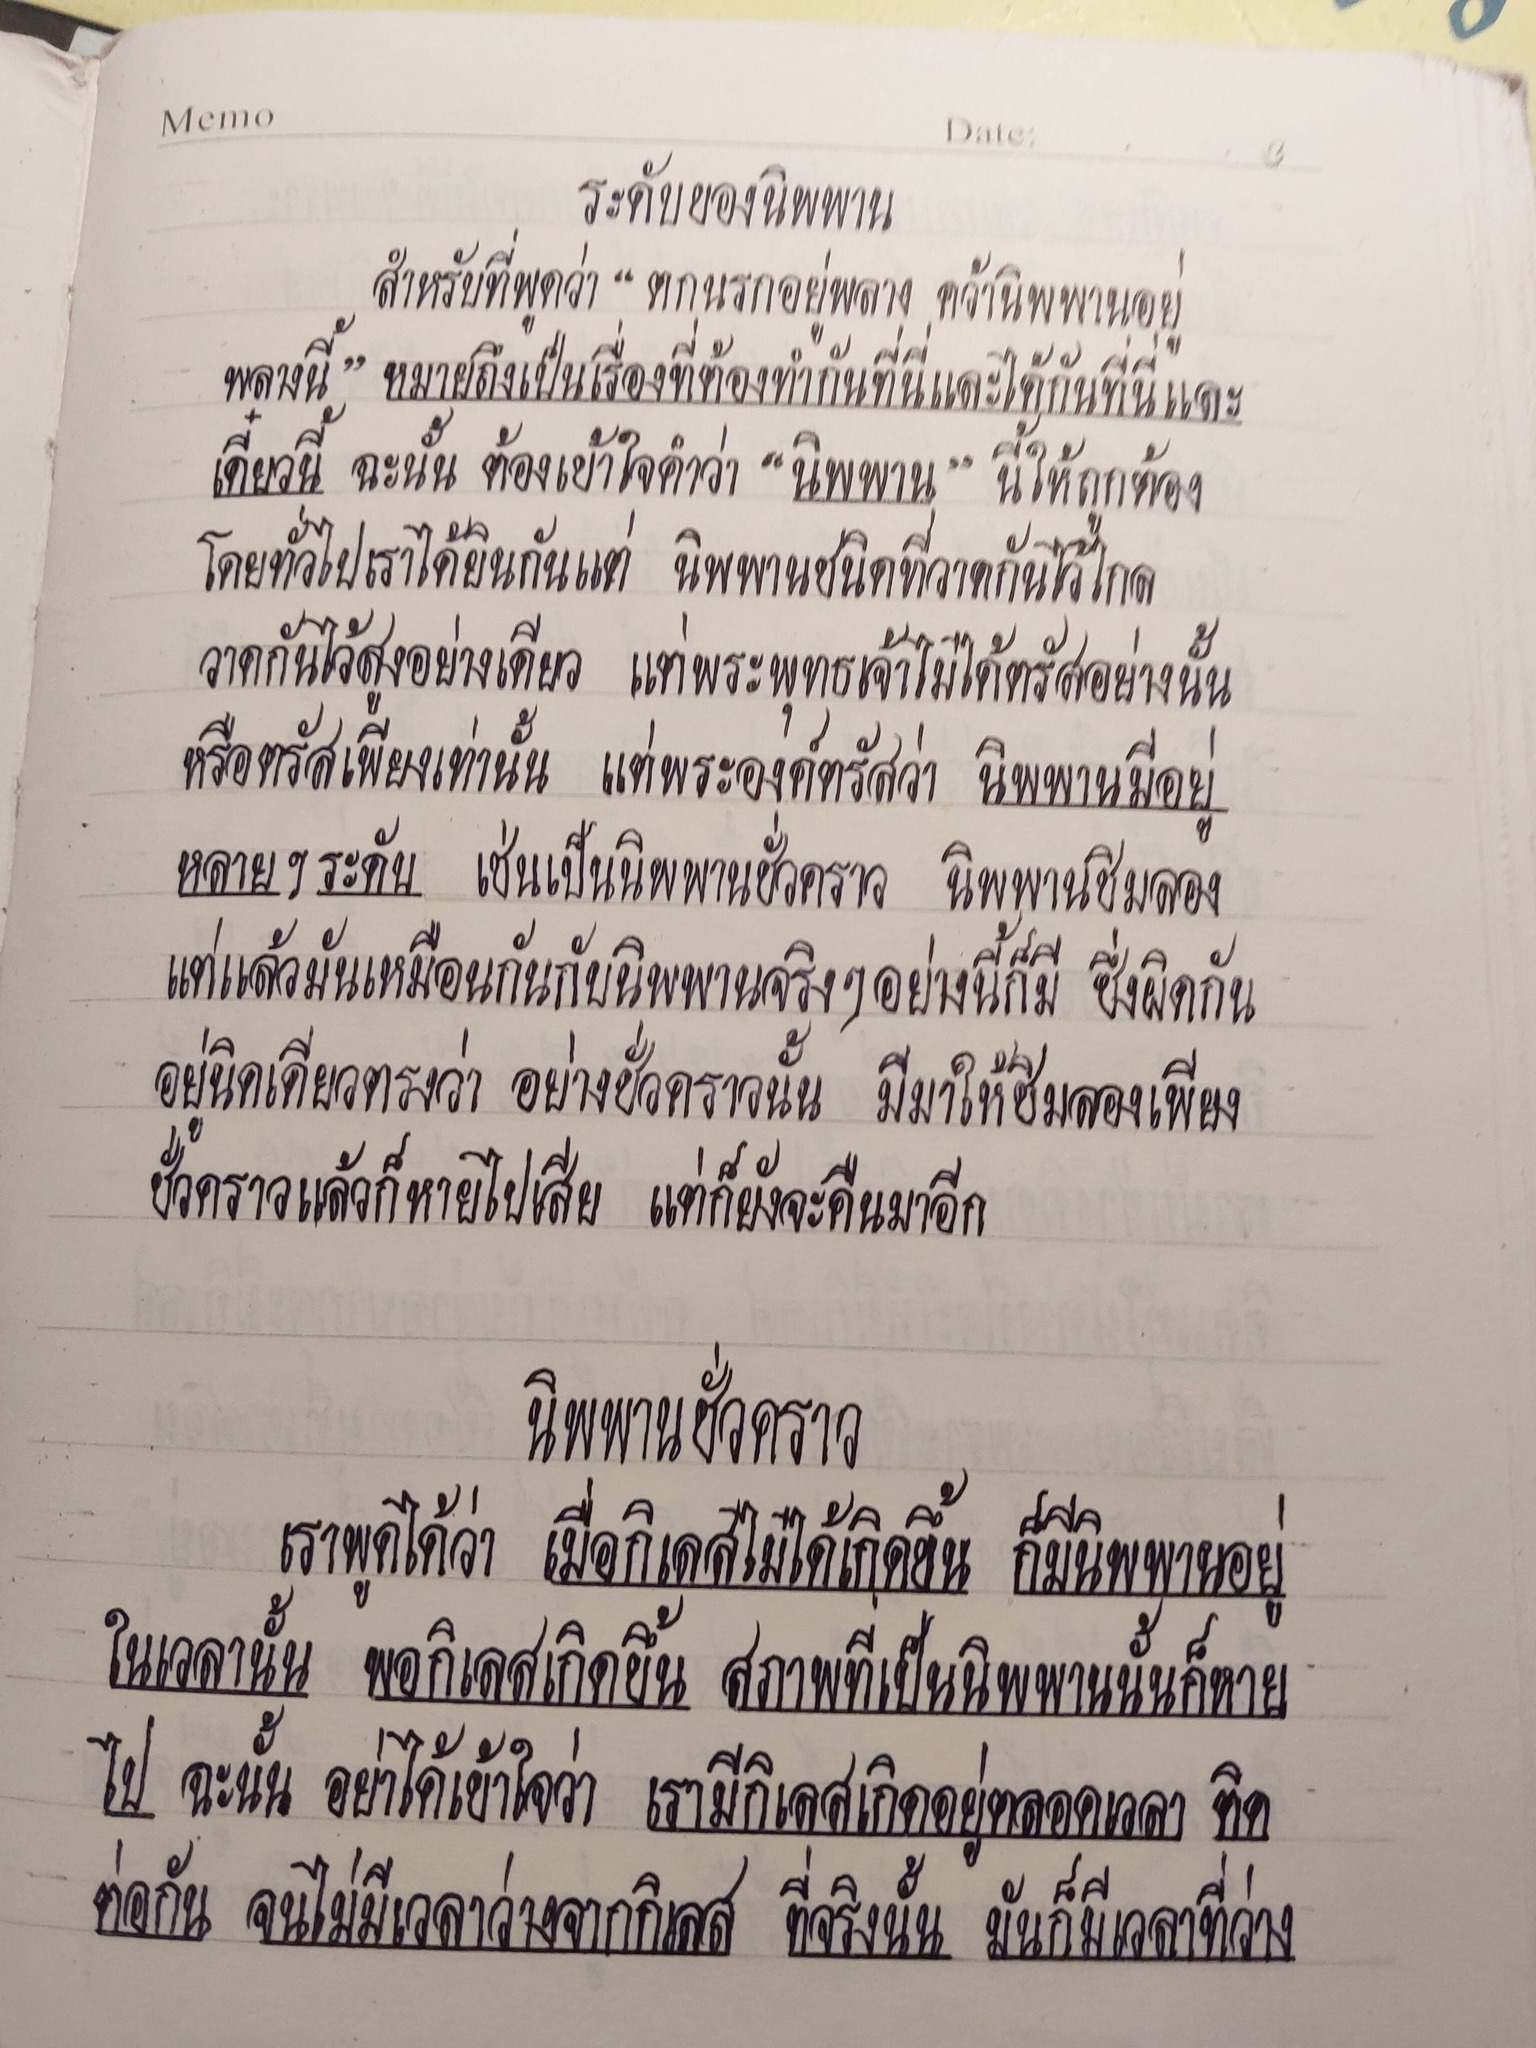 Memo
Date:
ระดับของนิพพาน
สำหรับที่พูดว่า "ตกนรกอยู่พลาง คว้านิพพานอยู่
พลางนี้" หมายถึงเป็นเรื่องที่ต้องทำกันที่นี่และได้กันที่นี่และ
เดี๋ยวนี้ ฉะนั้น ต้องเข้าใจคำว่า "นิพพาน" นี้ให้ถูกต้อง
โดยทั่วไปเราได้ยินกันแต่ นิพพานชนิดที่วาดกันไว้ไกล
วาดกันไว้สูงอย่างเดียว แต่พระพุทธเจ้าไม่ได้ตรัสอย่างนั้น
หรือตรัสเพียงเท่านั้น แต่พระองค์ตรัสว่า นิพพานมีอยู่
หลายๆ ระดับ เช่นเป็นนิพพานชั่วคราว นิพพานชิมลอง
แต่แล้วมันเหมือนกันกับนิพพานจริงๆ อย่างนี้ก็มี ซึ่งผิดกัน
อยู่นิดเดียวตรงว่า อย่างชั่วคราวนั้น มีมาให้ชิมลองเพียง
ชั่วคราวแล้วก็หายไปเสีย แต่ก็ยังจะคืนมาอีก
นิพพานชั่วคราว
เราพูดได้ว่า เมื่อกิเลสไม่ได้เกิดขึ้น ก็มีนิพพานอยู่
ในเวลานั้น พอกิเลสเกิดขึ้น สภาพที่เป็นนิพพานนั้นก็หาย
ไป ฉะนั้น อย่าได้เข้าใจว่า เรามีกิเลสเกิดอยู่ตลอดเวลา ติด
ต่อกัน จนไม่มีเวลาว่างจากกิเลส ที่จริงนั้น มันก็มีเวลาที่ว่าง